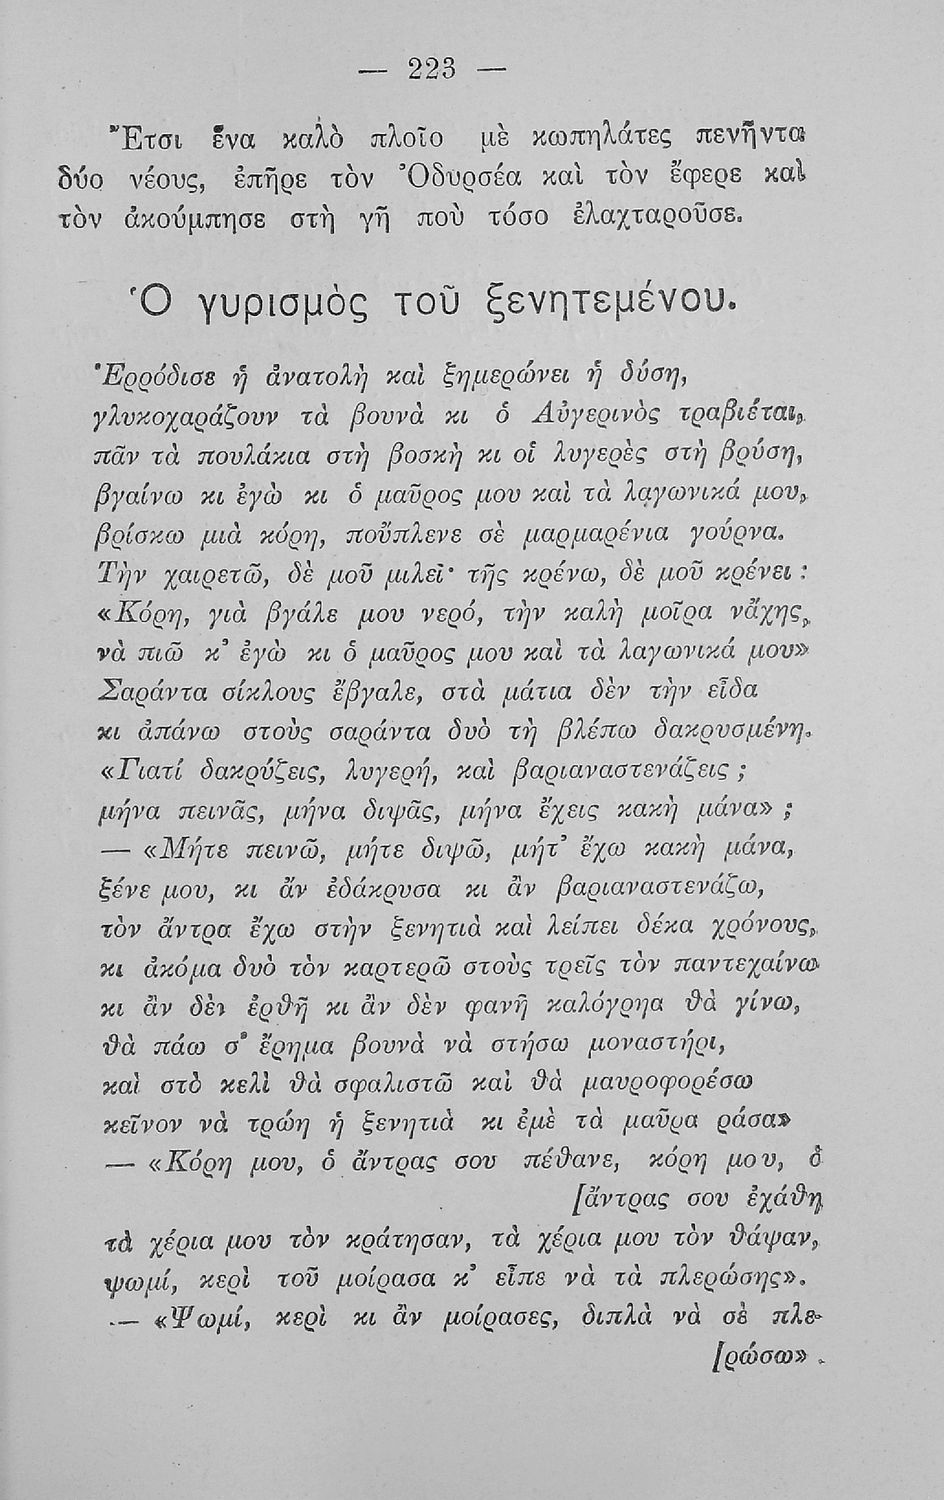 — 223 —
Ἔτσι ἕνα καλὸ πλοῖο μὲ κωπηλάτες πενῆντα
δύο νέους, ἐπῆρε τὸν Ὀδυρσέα καὶ τὸν ἔφερε καὶ
τὸν ἀκούμπησε στὴ γῆ ποὺ τόσο ἐλαχταροῦσε.
Ὁ γυρισμὸς τοῦ ξενητεμένου.
Ἐρρόδισε ἡ ἀνατολὴ καὶ ξημερώνει ἡ δύση,
γλυκοχαράζουν τὰ βουνὰ κι ὁ Αὐγερινὸς τραβιέται,
πᾶν τὰ πουλάκια στὴ βοσκὴ κι οἱ λυγερὲς στὴ βρύση,
βγαίνω κι ἐγὼ κι ὁ μαῦρος μου καὶ τὰ λαγωνικά μου,
βρίσκω μιὰ κόρη, ποὔπλενε σὲ μαρμαρένια γούρνα.
Τὴν χαιρετῶ, δὲ μοῦ μιλεῖ· τῆς κρένω, δὲ μοῦ κρένει :
«Κόρη, γιὰ βγάλε μου νερό, τὴν καλὴ μοῖρα νἄχης,
νὰ πιῶ κ᾿ ἐγὼ κι ὁ μαῦρος μου καὶ τὰ λαγωνικά μου»
Σαράντα σίκλους ἔβγαλε, στὰ μάτια δὲν τὴν εἶδα
κι ἀπάνω στοὺς σαράντα δυὸ τὴ βλέπω δακρυσμένη.
«Γιατί δακρύζεις, λυγερή, καὶ βαριαναστενάζεις ;
μήνα πεινᾶς, μήνα διψᾶς, μήνα ἔχεις κακὴ μάνα» ;
— «Μήτε πεινῶ, μήτε διψῶ, μήτ᾿ ἔχω κακὴ μάνα,
ξένε μου, κι ἂν ἐδάκρυσα κι ἂν βαριαναστενάζω,
τὸν ἄντρα ἔχω στὴν ξενητιὰ καὶ λείπει δέκα χρόνους,
κι ἀκόμα δυὸ τὸν καρτερῶ στοὺς τρεῖς τὸν παντεχαίνω
κι ἂν δὲν ἐρθῆ κι ἂν δὲν φανῆ καλόγρηα θὰ γίνω,
θὰ πάω σ᾿ ἔρημα βουνὰ νὰ στήσω μοναστήρι,
καὶ στὸ κελὶ θὰ σφαλιστῶ καὶ θὰ μαυροφορέσω
κεῖνον νὰ τρώη ἡ ξενητιὰ κι ἐμὲ τὰ μαῦρα ράσα»
— «Κόρη μου, ὁ ἄντρας σου πέθανε, κόρη μου, ὁ
[ἄντρας σου ἐχάθη,
τὰ χέρια μου τὸν κράτησαν, τὰ χέρια μου τὸν θάψαν,
ψωμί, κερὶ τοῦ μοίρασα κ᾿ εἶπε νὰ τὰ πλερώσης».
— «Ψωμί, κερὶ κι ἂν μοίρασες, διπλὰ νὰ σὲ πλε-
[ρώσω».